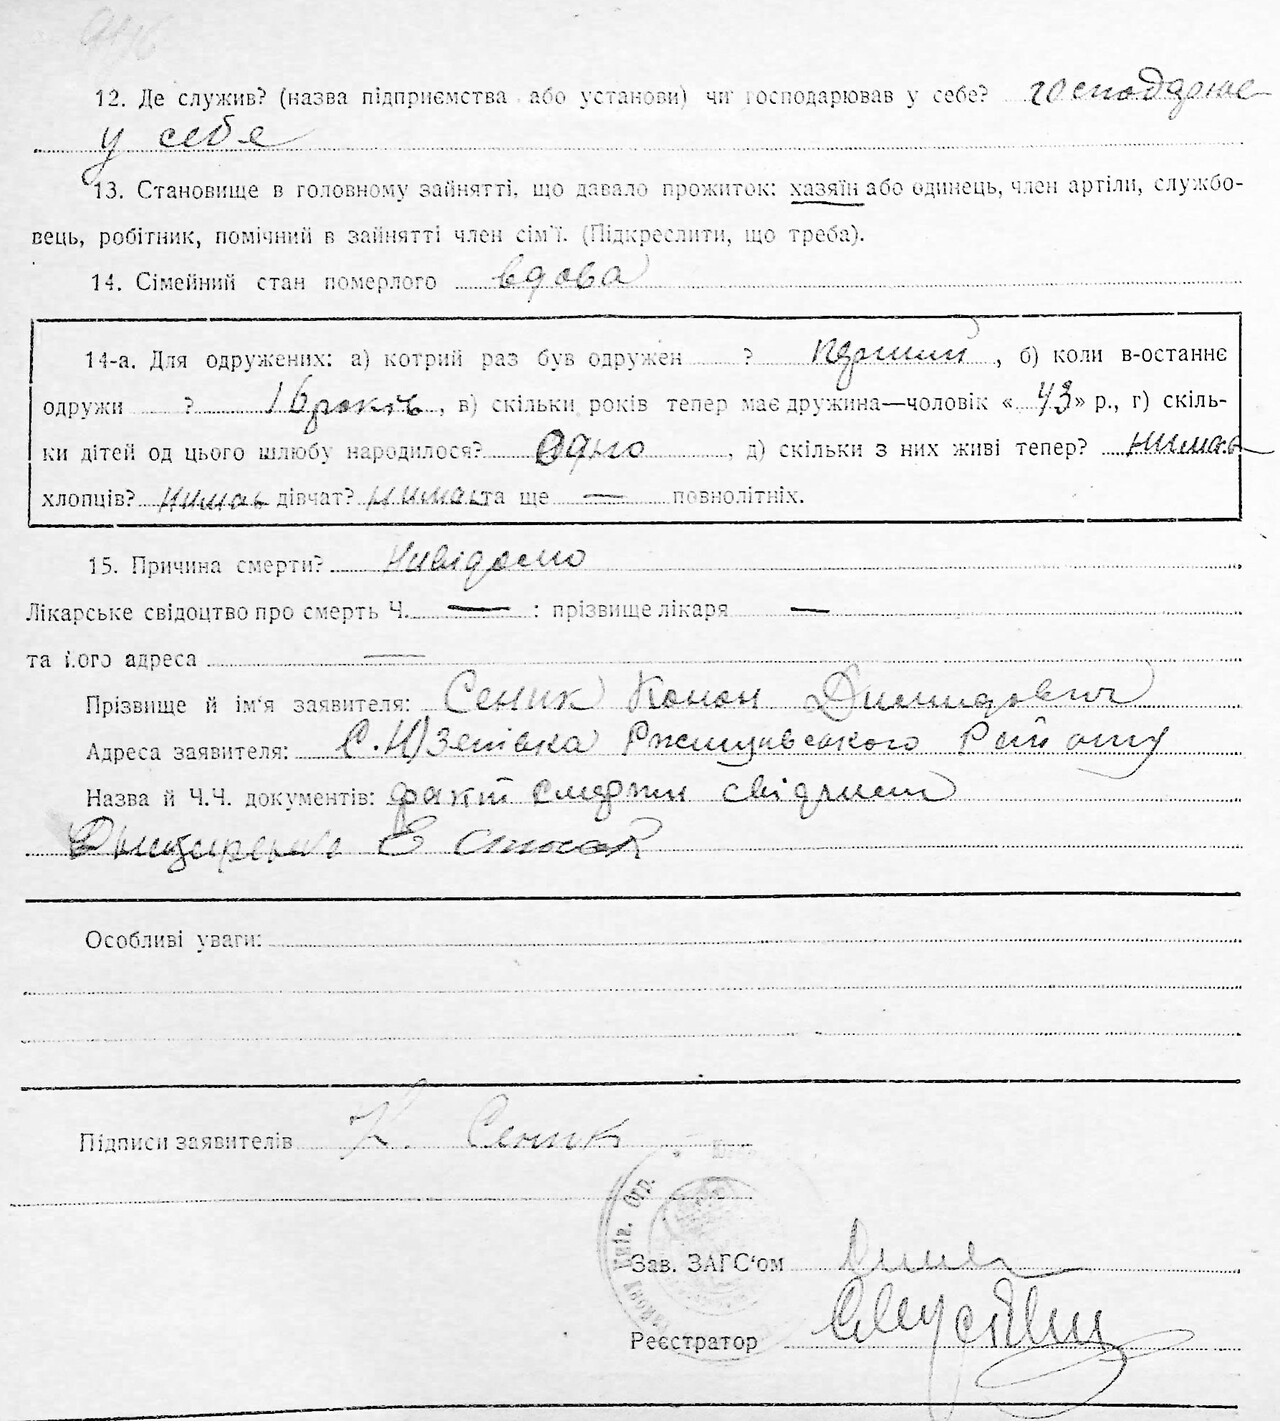 12. Де служив? (назва підприємства або установи) чи господарював у себе? господарює
у себе
13. Становище в головному зайнятті, що давало прожиток: хазяїн або одинець, член артіли, службо-
вець, робітник, помічний в зайнятті член сім'ї. (Підкреслити, що треба).
14. Сімейний стан померлого вдова
14-а. Для одружених: а) котрий раз був одружен ? перший, б) коли в-останнє
одружи ? 16 років, в) скільки років тепер має дружина—чоловік «43» р., г) скіль-
ки дітей од цього шлюбу народилося? одно, д) скільки з них живі тепер? нимаь
хлопців? нимаь дівчат? нимаь та ще — повнолітніх.
15. Причина смерти? Нивідомо
Лікарське свідоцтво про смерть Ч. — : прізвище лікаря —
та його адреса —
Прізвище й ім'я заявителя: Сеник Конон
Адреса заявителя: с. Юзепівка Ржищивського Району
Назва й Ч.Ч. документів: факт смерти свідчит
Е
Особливі уваги:
Підписи заявителів К. Сеник
Зав. ЗАГС'ом
Реєстратор